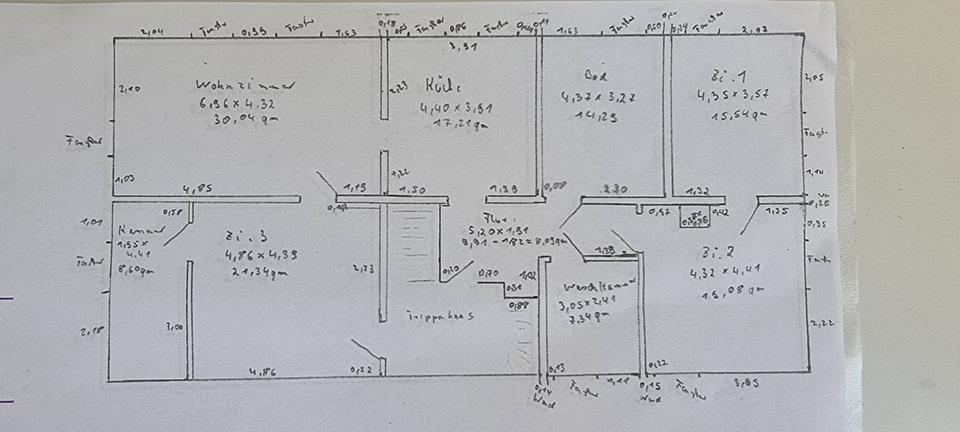 2,04 Fenster 0,99 Fenster 1,63 0,18 Fenster 0,86 Fenster 1,63 Fenster Fenster 2,03
3,91
Wohnzimmer
6,96 x 4,32
30,04 qm
Küche
4,40 x 3,91
17,21 qm
Bad
4,37 x 3,27
14,29
Zi. 1
4,35 x 3,57
15,54 qm
2,10
2,05
Fenster
Fenst.
1,03
1,22
1,14
4,85
1,19
1,50
1,39
0,08
2,20
1,32
0,26
0,35
1,35
0,42
0,97
1,01
0,58
Kammer
1,95 x
4,41
8,60 qm
Zi. 3
4,86 x 4,39
21,34 qm
Flur
5,20 x 1,91
9,91 - 1,82 = 8,09 qm
Zi. 2
4,32 x 4,41
2,73
0,20
0,70
0,91
0,88
1,02
1,39
3,05 x 2,41
7,34 qm
Treppenhaus
Fenster
Fenster
2,18
3,00
2,22
4,86
0,52
0,14
Wand
0,13
Fenster
1,11
0,15
Wand
0,22
Fenster
3,05